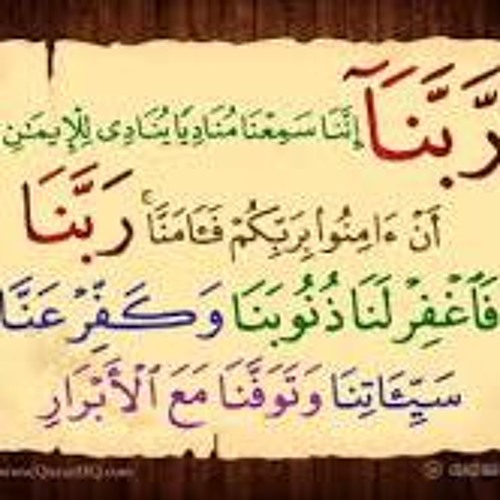 رَّبَّنَآ إِنَّنَا سَمِعْنَا مُنَادِيًا يُنَادِى لِلْإِيمَٰنِ
أَنْ ءَامِنُوا۟ بِرَبِّكُمْ فَـَٔامَنَّا ۚ رَبَّنَا
فَٱغْفِرْ لَنَا ذُنُوبَنَا وَكَفِّرْ عَنَّا
سَيِّـَٔاتِنَا وَتَوَفَّنَا مَعَ ٱلْأَبْرَارِ